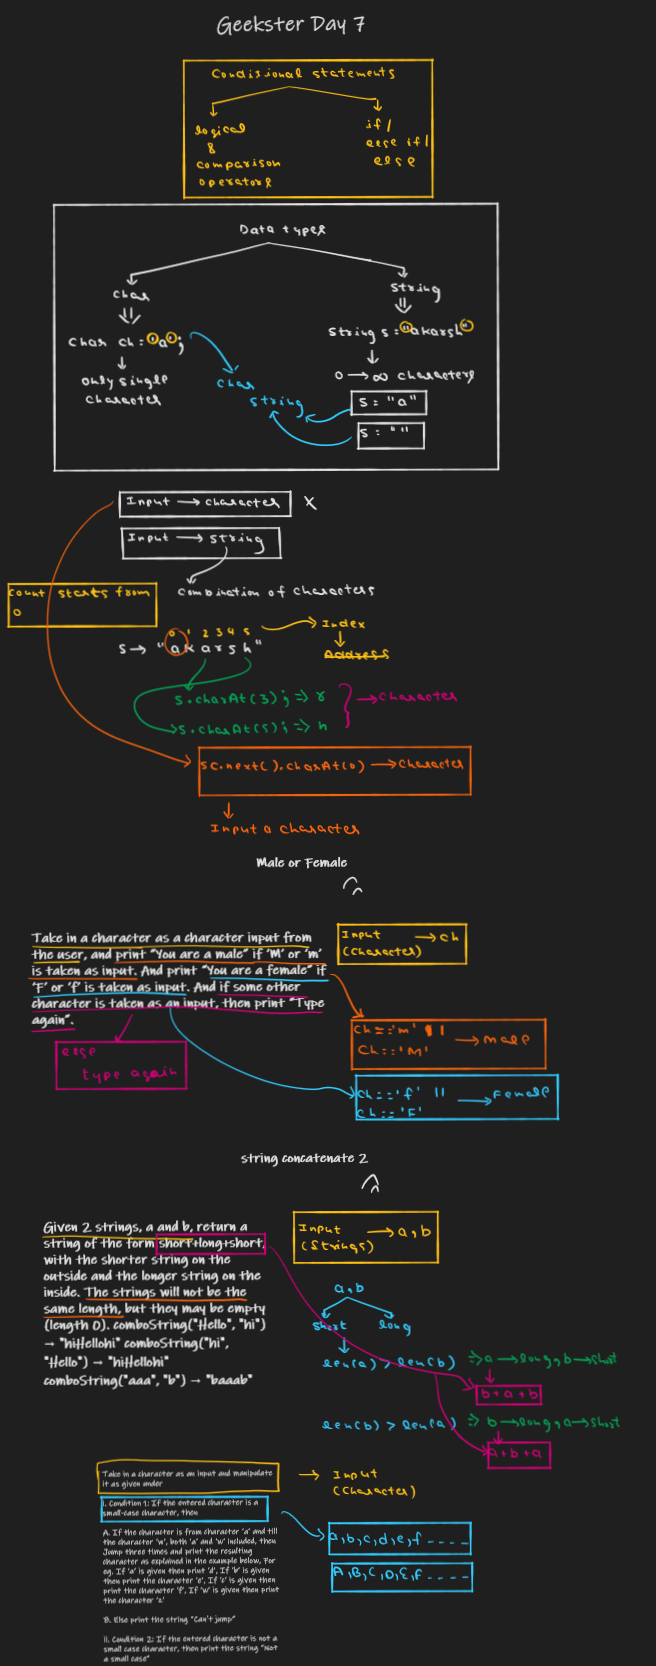 Geekster Day 7
Conditional statements
logical
&
comparison
operators
if/
else if/
else
Data types
char
string
char ch = 'a';
string s = "akarsh"
only single
character
0 → ∞ characters
char
string
s = "a"
s = " "
Input → character X
Input → string
combination of characters
count starts from
0
0 1 2 3 4 5
→ Index
s → "akarsh"
Address
s.charAt(3); => r
→ character
s.charAt(5); => h
sc.next().charAt(0) → character
Input a character
Male or Female
Take in a character as a character input from
the user, and print "You are a male" if 'M' or 'm'
is taken as input. And print "You are a female" if
'F' or 'f' is taken as input. And if some other
character is taken as an input, then print "Type
again".
Input → ch
(character)
ch == 'm' ||
ch == 'M' → male
else
type again
ch == 'f' || → Female
ch == 'F'
string concatenate 2
Given 2 strings, a and b, return a
string of the form short+long+short,
with the shorter string on the
outside and the longer string on the
inside. The strings will not be the
same length, but they may be empty
(length 0). comboString("Hello", "hi")
→ "hiHellohi" comboString("hi",
"Hello") → "hiHellohi"
comboString("aaa", "b") → "baaab"
Input → a, b
(strings)
a, b
short long
len(a) > len(b) => a → long, b → short
b + a + b
len(b) > len(a) => b → long, a → short
a + b + a
Take in a character as an input and manipulate
it as given under
→ Input
(character)
i. Condition 1: If the entered character is a
small-case character, then
A. If the character is from character 'a' and till
the character 'w', both 'a' and 'w' included, then
Jump three times and print the resulting
character as explained in the example below, For
eg. If 'a' is given then print 'd', If 'b' is given
then print the character 'e', If 'c' is given then
print the character 'f', If 'w' is given then print
the character 'z.'
a, b, c, d, e, f - - - -
A, B, C, D, E, F - - - -
B. Else print the string "Can't jump"
ii. Condition 2: If the entered character is not a
small case character, then print the string "Not
a small case"